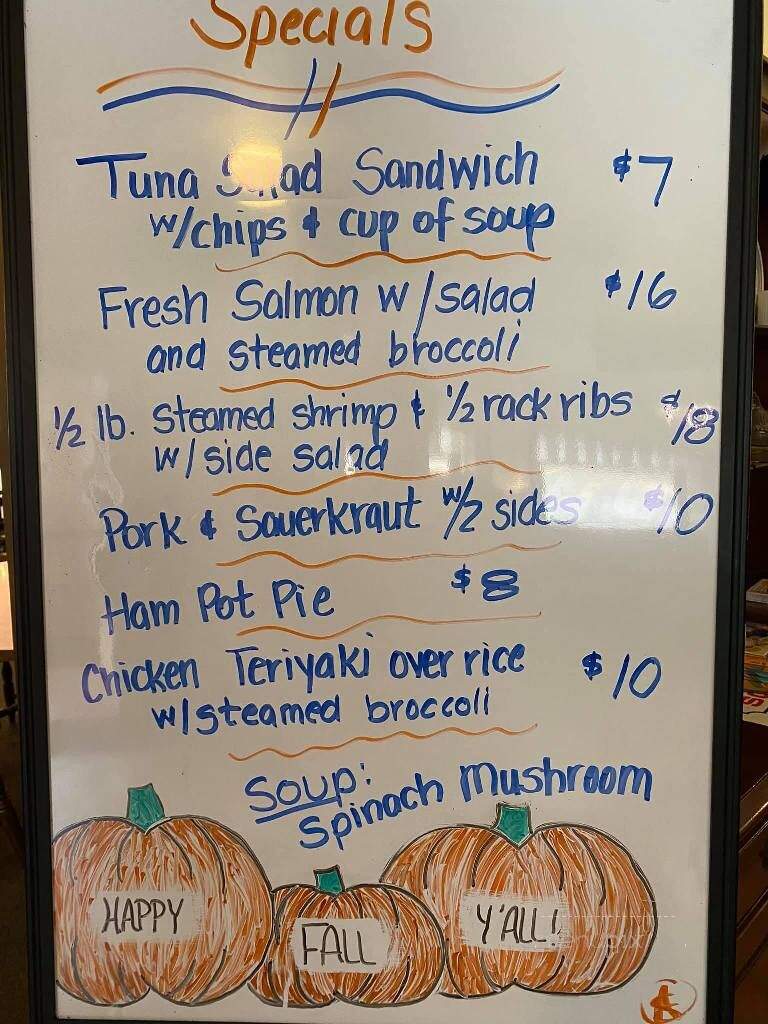 Specials
Tuna Salad Sandwich $7
w/chips & cup of soup
Fresh Salmon w/salad $16
and steamed broccoli
1/2 lb. steamed shrimp & 1/2 rack ribs $18
w/side salad
Pork & Sauerkraut w/2 sides $10
Ham Pot Pie $8
Chicken Teriyaki over rice $10
w/steamed broccoli
Soup:
Spinach Mushroom
HAPPY
FALL
Y'ALL!